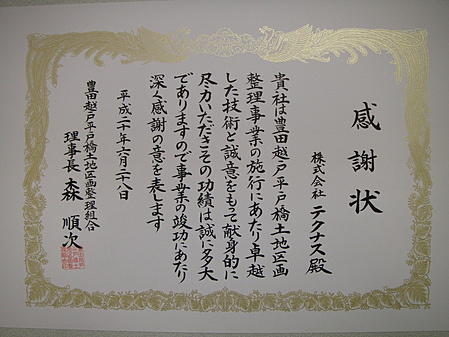 感謝状
株式会社 テクナス 殿
貴社は豊田越戸平戸橋土地区画
整理事業の施行にあたり卓越
した技術と誠意をもって献身的に
尽力いただきその功績は誠に多大
でありますので事業の竣功にあたり
深く感謝の意を表します
平成二十年六月二十八日
豊田越戸平戸橋土地区画整理組合
理事長 森 順次